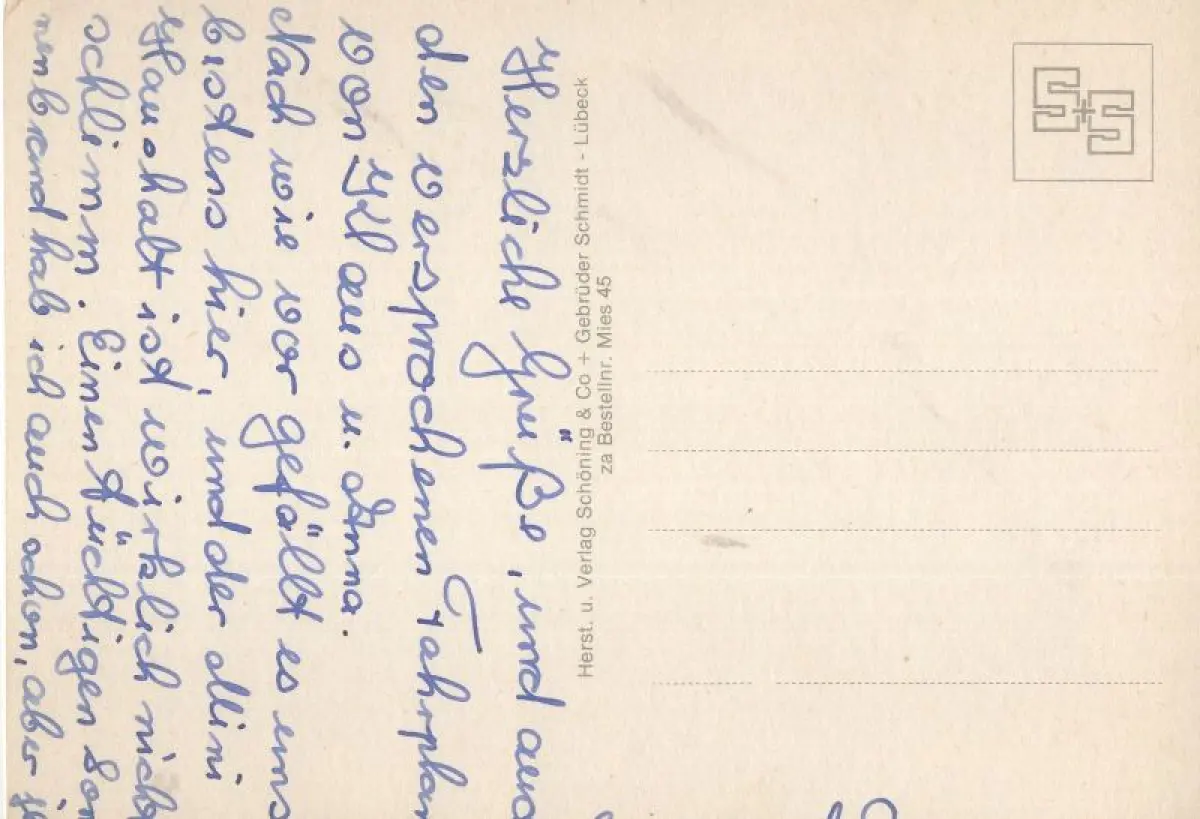 Herzliche Grüße, und auc
den versprochenen Fahrplan
von Klaus u. Anna.
Nach wie vor gefällt es uns
bistens hier, und der Mini
Haushalt ist wirklich nicht
schlimm. Einen tüchtigen Son
nenbrand hab ich auch schon, aber je
Herst. u. Verlag Schöning & Co + Gebrüder Schmidt - Lübeck
za Bestellnr. Mies 45
S+S